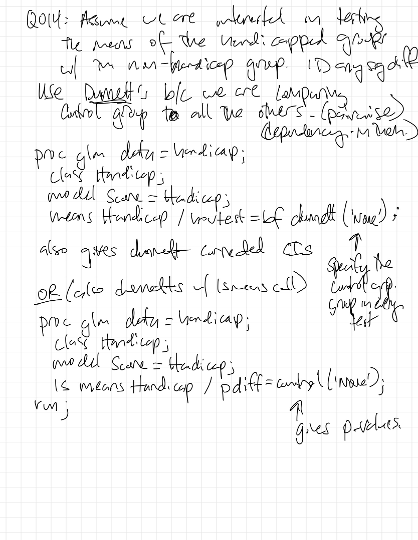 Q014: Assume we are interested in testing
the means of the handicapped groups
w/ the non-handicap group. ID any sig diff
Use Dunnett's b/c we are comparing
Control group to all the others - (pairwise)
(dependency
proc glm data = handicap;
class Handicap;
model Score = Handicap;
means Handicap / hovtest = bf dunnett ('None');
also gives dunnett corrected CIs
specify the
control grp.
group in
test
OR (also dunnetts w/ lsmeans call)
proc glm data = handicap;
class Handicap;
model Score = Handicap;
ls means Handicap / pdiff = control ('None');
run;
gives p-values